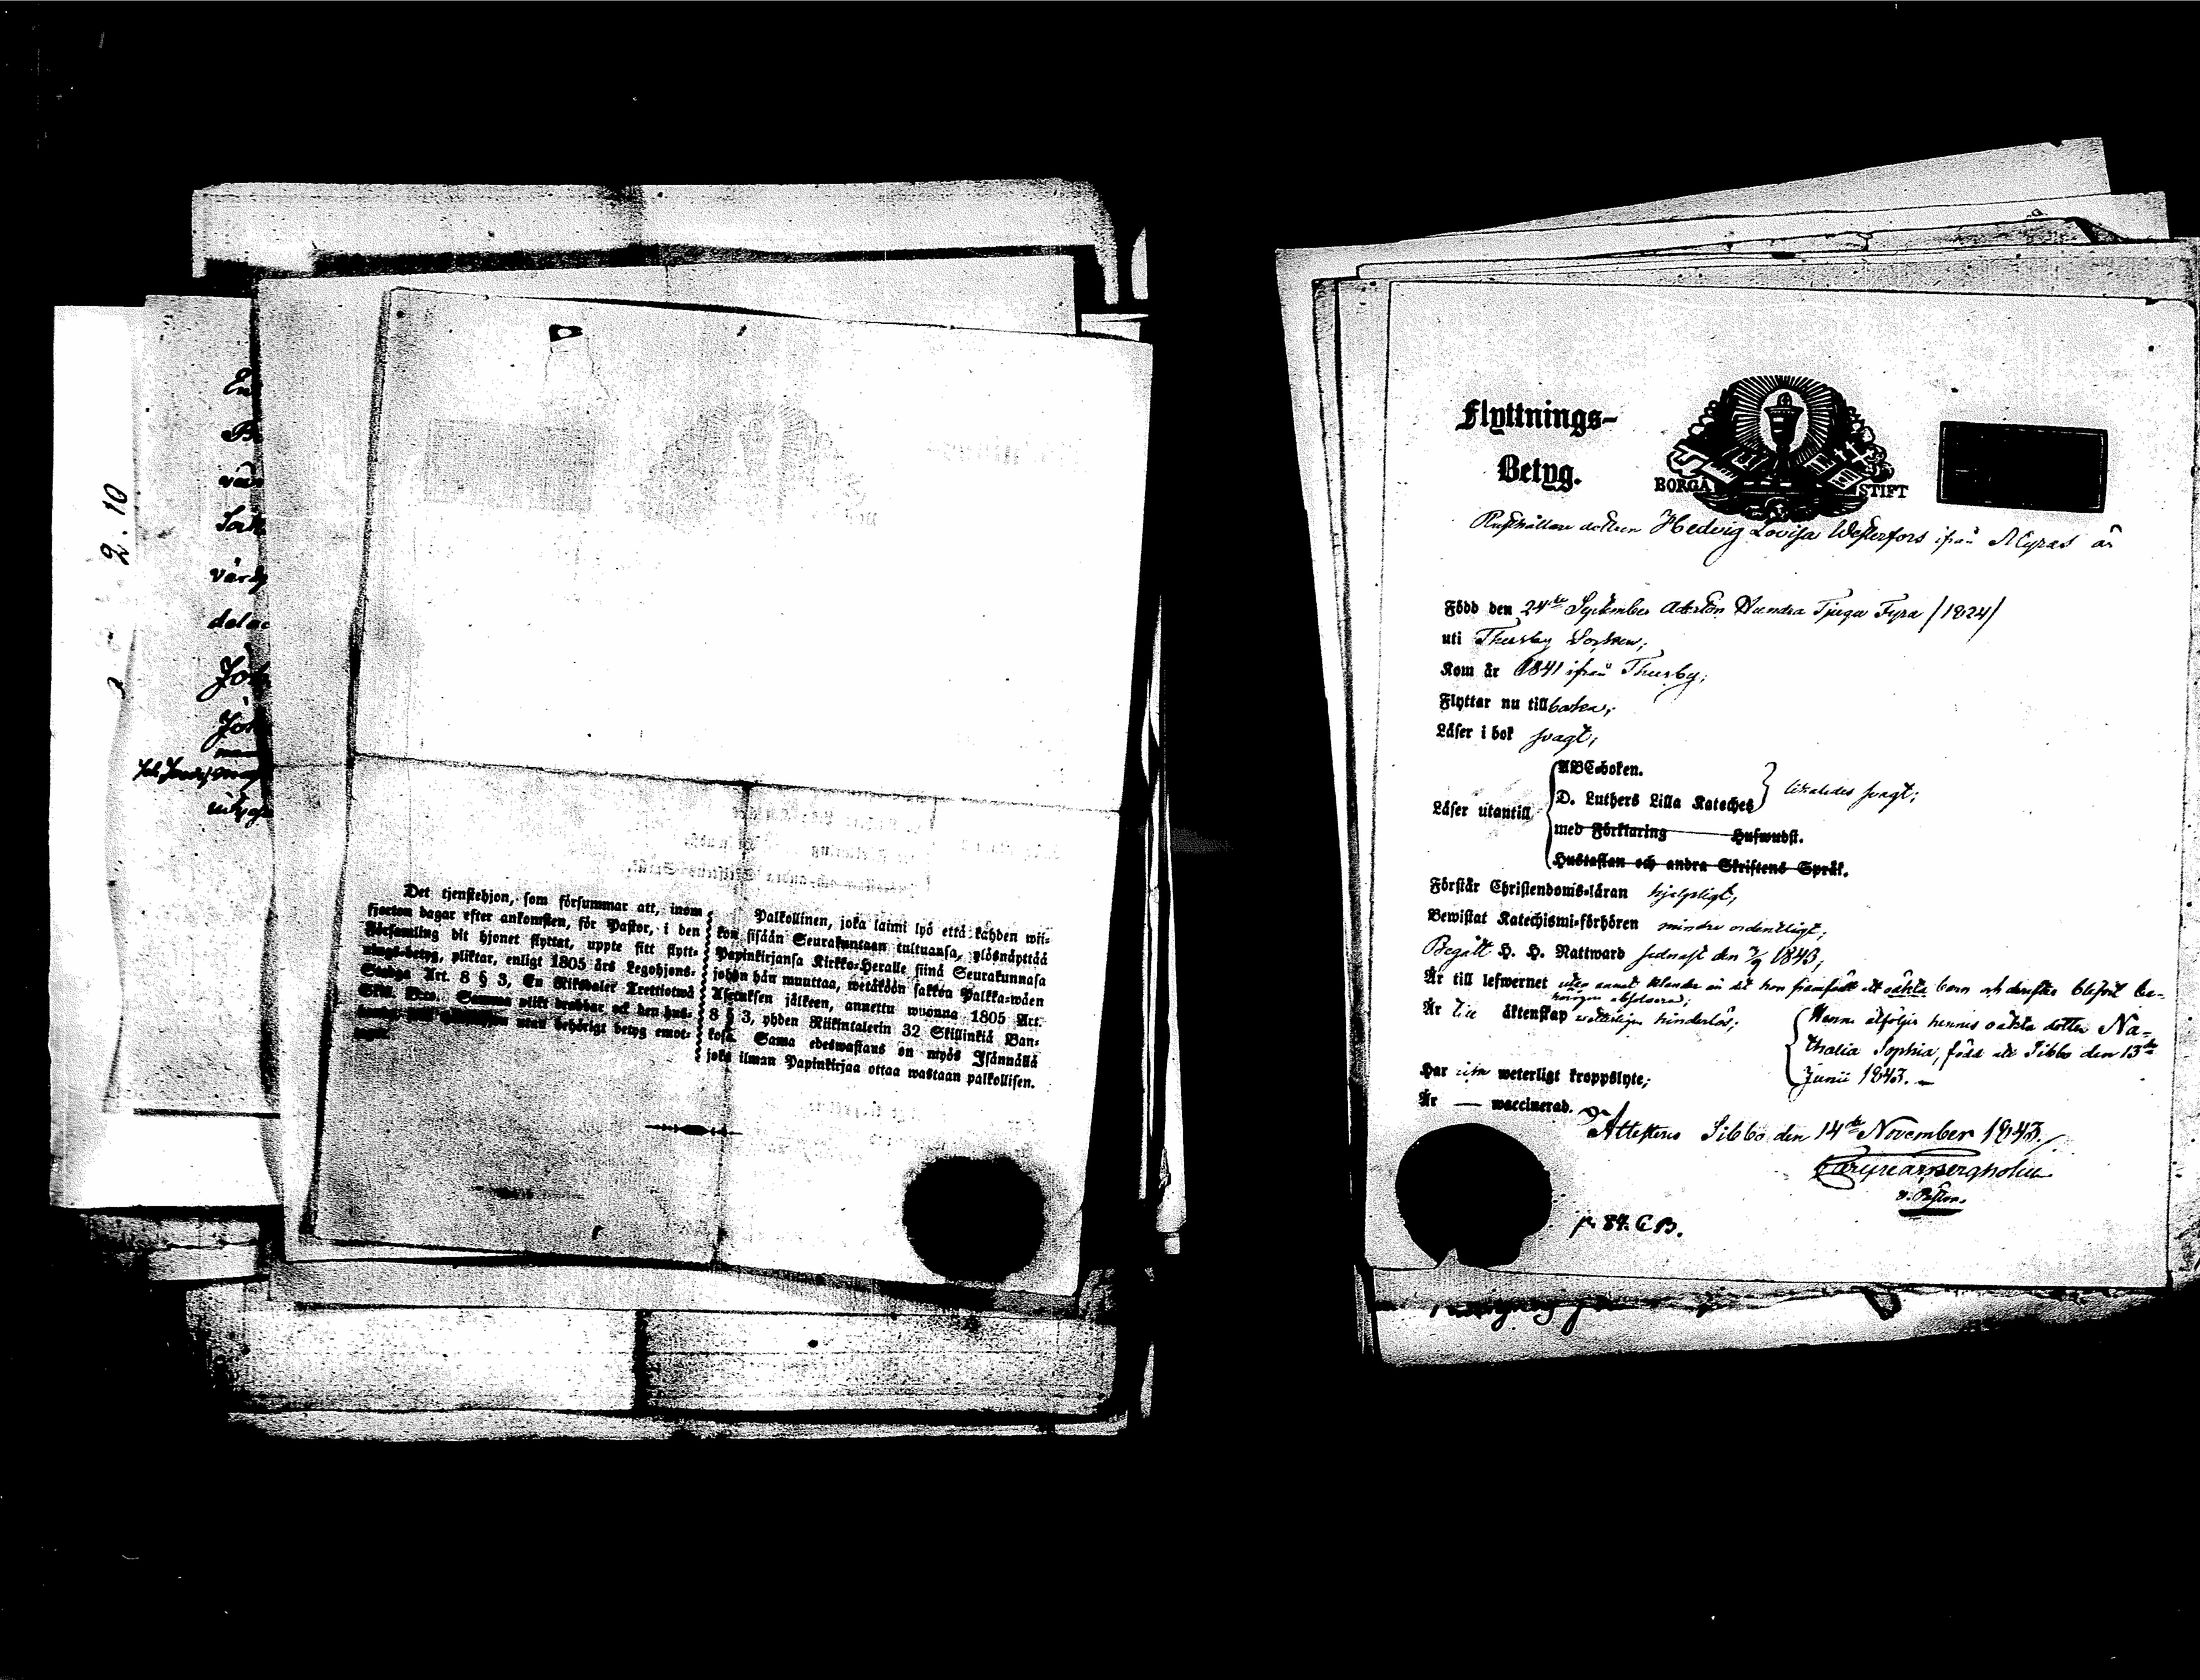 2. 10
Det tjenstehjon, som försummar att, inom
fjorton dagar efter ankomsten, för Pastor, i den
Församling dit hjonet flyttat, uppte sitt flytt-
nings-betyg, pliktar, enligt 1805 års Legohjons-
Stadga Art. 8 § 3, En Riksdaler Trettiotwå
Skill. Bco. Samma plikt drabbar ock den hus-
utan behörigt betyg emot-
Palkollinen, joka laimi lyö että kahden wii-
kon sisään Seurakuntaan tultuansa, ylösnäyttää
Papinkirjansa Kirkko-Heralle siinä Seurakunnasa
johon hän muuttaa, wetäköön sakkoa Palkka-wäen
Asetuksen jälkeen, annettu wuonna 1805 Art.
8 § 3, yhden Riikintalerin 32 Skillinkiä Ban-
kosa. Sama edeswastaus on myös Isännällä
joka ilman Papinkirjaa ottaa wastaan palkollisen.
Flyttnings-
Betyg.
BORGÅ STIFT
Rusthållare dottren Hedvig Lovisa Westerfors ifrån är
Född den 24de September Aderton Hundra Tjugu Fyra /1824/
uti Thusby Socken;
Kom år 1841 ifrån Thusby;
Flyttar nu tillbaka;
Läser i bok svagt;
Läser utantill
ABC-boken.
D. Luthers Lilla Kateches
likaledes svagt;
med Förklaring Hufwudst.
Hustaflan och andra Skriftens Språk.
Förstår Christendoms-läran hjelpligt;
Bewistat Katechismi-förhören mindre ordentligt;
Begått H. H. Nattward sednast den 1843;
Är till lefwernet utan annat klander än att hon framfödt ett oäkta barn och derefter blifvit be-
hörigen absolverad;
Är till äktenskap hinderlös;
Henne åtföljer hennes oäkta dotter Na-
thalia Sophia, född uti Sibbo den 13de
Junii 1843. —
Har weterligt kroppslyte;
Är — waccinerad.
Attesteras Sibbo den 14de November 1843./
v. Pastor.
p. 84. C.B.